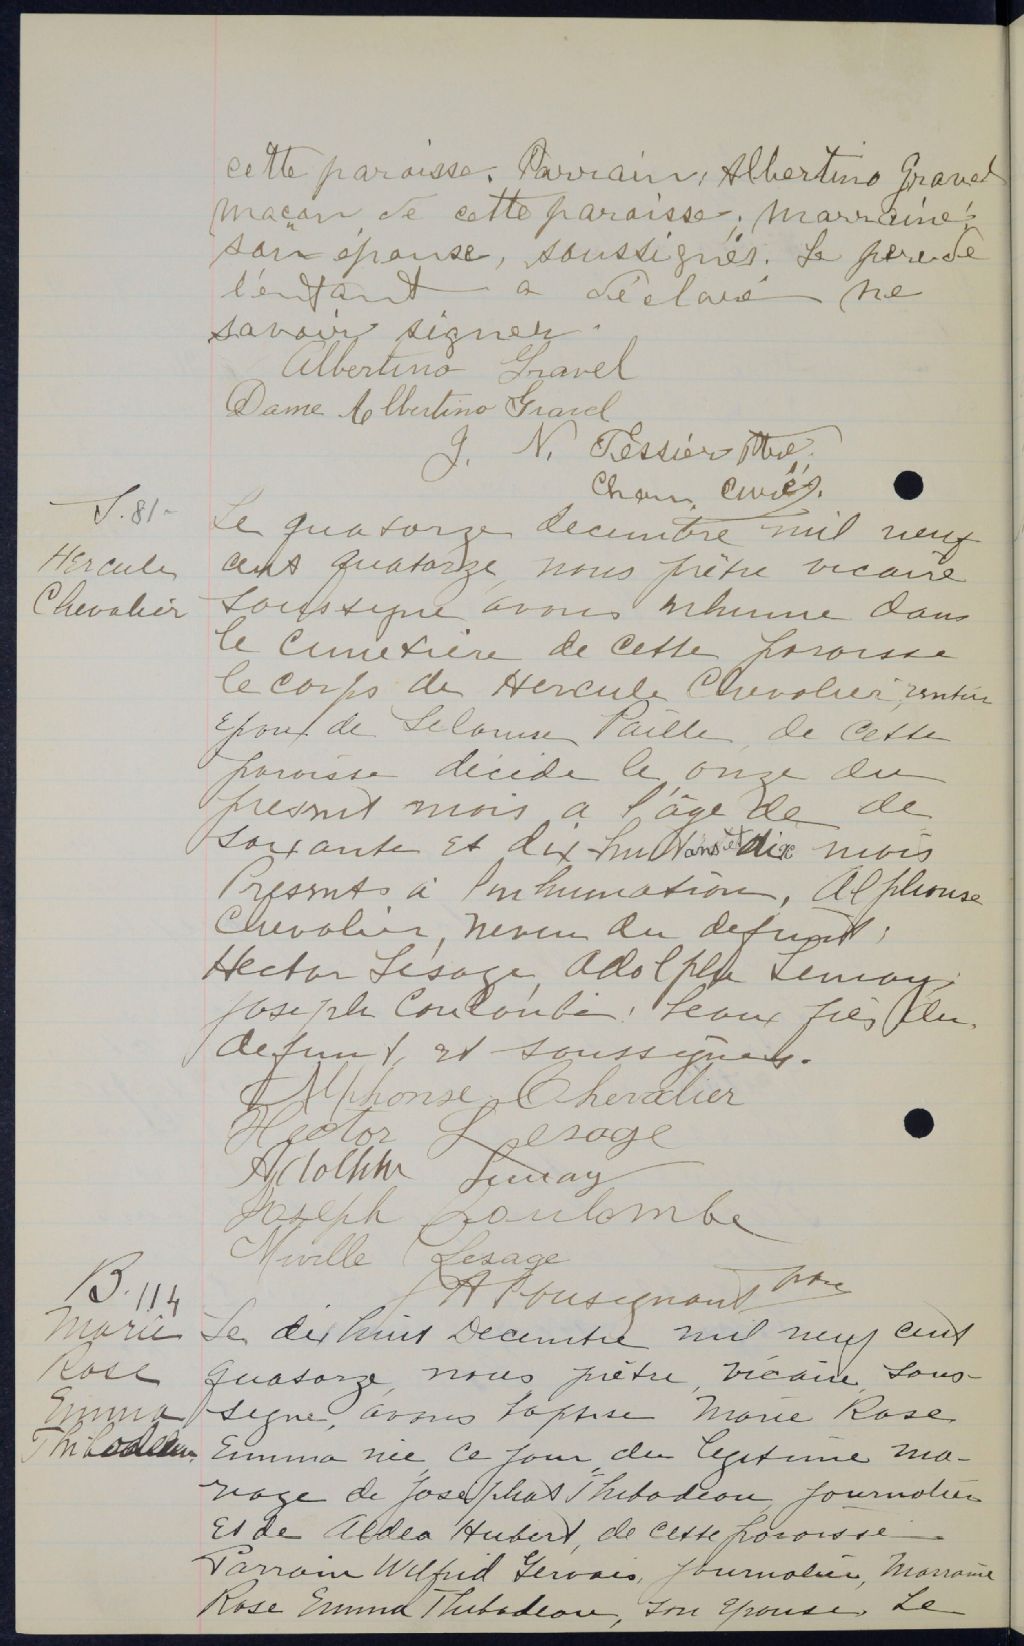 cette paroisse. Parrain, Albertino Gravel
maçon de cette paroisse; marraine:
son épouse, soussignés. Le pere de
l'enfant a déclaré ne
savoir signer.
Albertino Gravel
Dame Albertino Gravel
J. N. Tessier Ptre.
Chan. Curé.
S. 81-
Hercule
Chevalier
Le quatorze decembre mil neuf
cent quatorze, nous prêtre vicaire
soussigne avons inhume dans
le cimetière de cette paroisse
le corps de Hercule Chevalier, rentier
epoux de Paille, de cette
paroisse décide le onze du
present mois a l'âge de de
soixante et dix-huit ans et dix mois
Presents à l'inhumation, Alphonse
Chevalier, neveu du defunt;
Hector Lesage, Adolphe Lemay,
Joseph Coulombe, beaux frès du
defunt, et soussignes.
Alphonse Chevalier
Hector Lesage
Adolphe Lemay
Joseph Coulombe
Miville Lesage
A Pousignant ptre
B. 114
Marie
Rose
Emma
Thibodeau
Le dix huit Decembre mil neuf cent
quatorze, nous prêtre, vicaire, sous-
signe, avons baptise Marie Rose
Emma née ce jour du legitime ma-
riage de Josephat Thibodeau, journalier
et de Aldea Hubert, de cette paroisse
Parrain Wilfrid Gervais, journalier, Marraine
Rose Emma Thibodeau, son epouse. Le